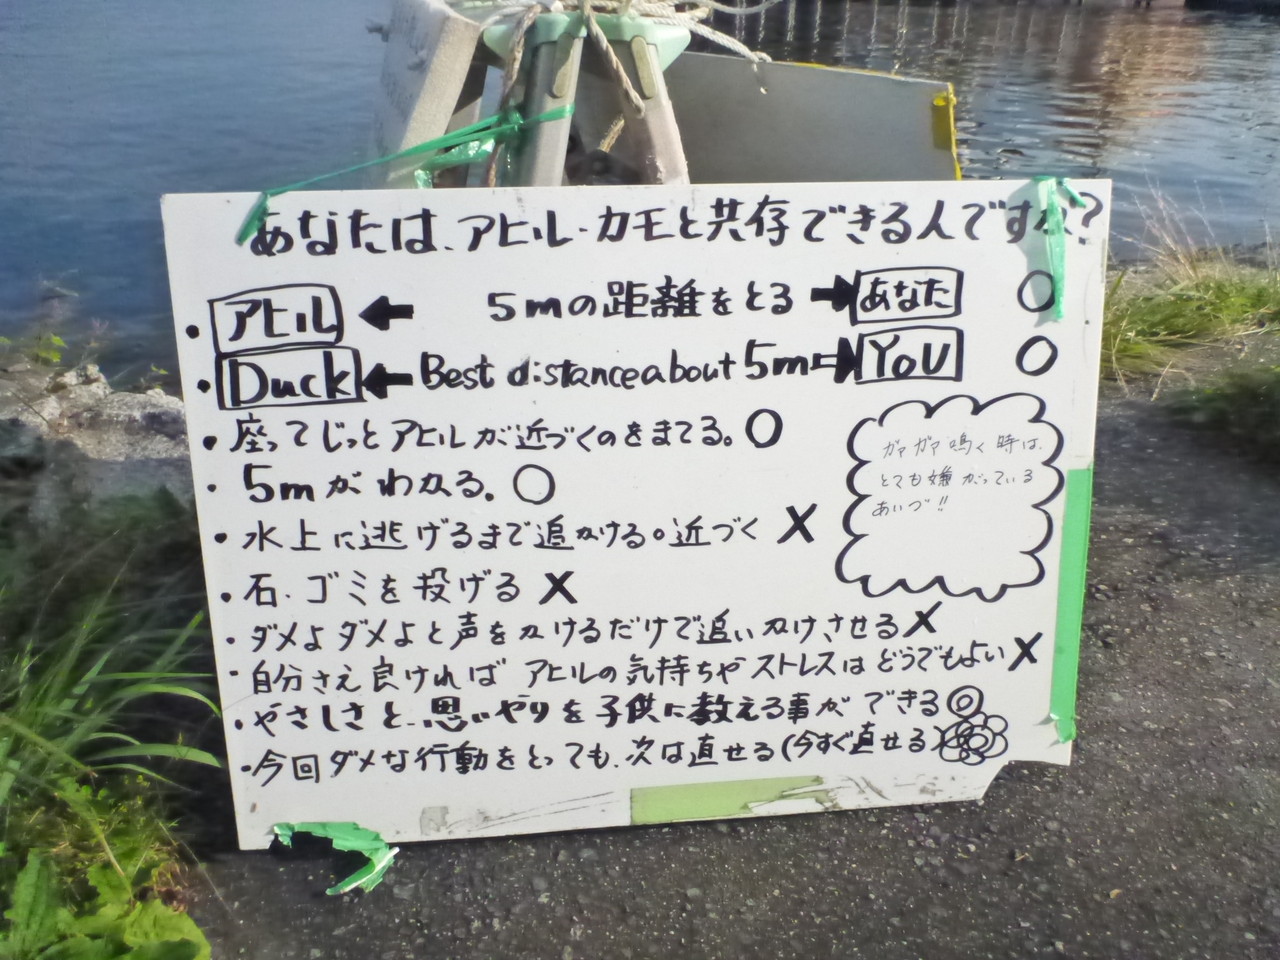 あなたは、アヒル・カモと共存できる人ですか?
・アヒル ← 5mの距離をとる → あなた ○
・Duck ← Best distance about 5m → YoU ○
・座ってじっとアヒルが近づくのをまてる。○
・5mがわかる。○
・水上に逃げるまで追かける。近づく X
・石・ゴミを投げる X
・ダメよダメよと声をかけるだけで追いかけさせる X
・自分さえ良ければ アヒルの気持ちやストレスはどうでもよい X
・やさしさと、思いやりを子供に教える事ができる ◎
・今回ダメな行動をとっても、次は直せる(今すぐ直せる)
ガァガァ鳴く時は、
とても嫌がっている
あいづ!!